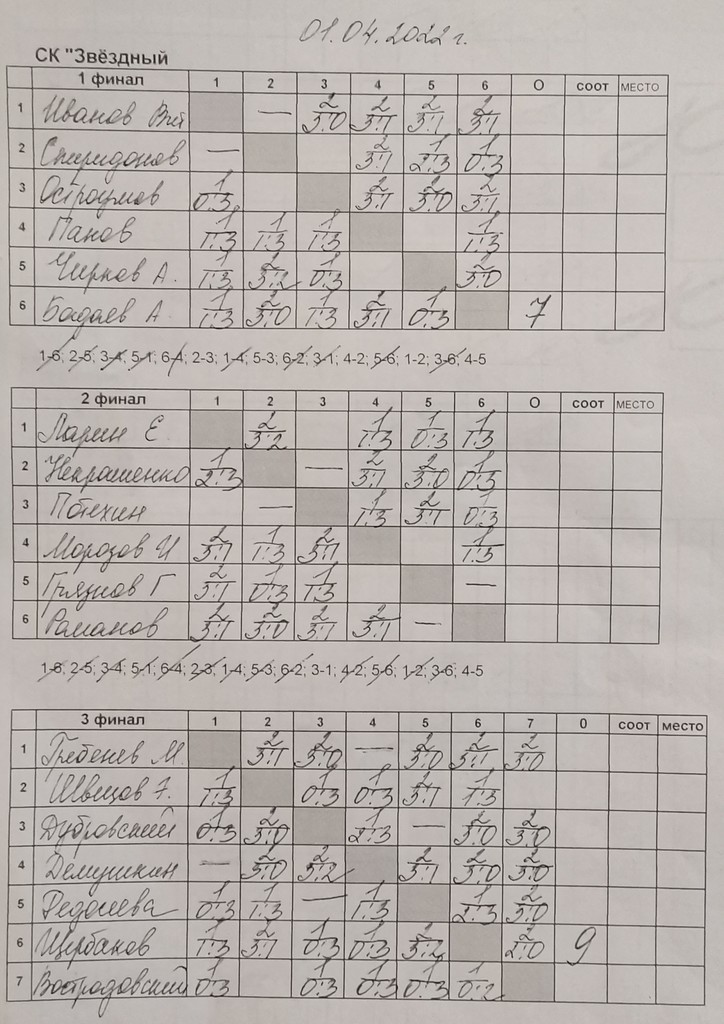 01.04.2022 г.
СК "Звёздный
1 финал 1 2 3 4 5 6 О СООТ МЕСТО
1 Иванов Вит — 2/3:0 2/3:1 2/3:1 2/3:1
2 Спиридонов — 2/3:1 1/2:3 1/0:3
3 Остроумов 1/0:3 2/3:1 2/3:0 2/3:1
4 Панов 1/1:3 1/1:3 1/1:3 1/1:3
5 Чирков А. 1/1:3 2/3:2 1/0:3 2/3:0
6 Бадаев А 1/1:3 2/3:0 1/1:3 2/3:1 1/0:3 7
1-6; 2-5; 3-4; 5-1; 6-4; 2-3; 1-4; 5-3; 6-2; 3-1; 4-2; 5-6; 1-2; 3-6; 4-5
2 финал 1 2 3 4 5 6 О СООТ МЕСТО
1 Ларин Е. 2/3:2 1/1:3 1/0:3 1/1:3
2 Некрашенко 1/2:3 — 2/3:1 2/3:0 1/0:3
3 Потехин — 1/1:3 2/3:1 1/0:3
4 Морозов И 2/3:1 1/1:3 2/3:1 1/1:3
5 Грязнов Г 2/3:1 1/0:3 1/1:3 —
6 Романов 2/3:1 2/3:0 2/3:1 2/3:1 —
1-6; 2-5; 3-4; 5-1; 6-4; 2-3; 1-4; 5-3; 6-2; 3-1; 4-2; 5-6; 1-2; 3-6; 4-5
3 финал 1 2 3 4 5 6 7 0 соот место
1 Гребенев М. 2/3:1 2/3:0 — 2/3:0 2/3:1 2/3:0
2 Швецов 1/1:3 1/0:3 1/0:3 2/3:1 1/1:3
3 Дубровский 1/0:3 2/3:0 1/2:3 — 2/3:0 2/3:0
4 Демушкин — 2/3:0 2/3:2 2/3:1 2/3:0 2/3:0
5 Федосеева 1/0:3 1/1:3 — 1/1:3 1/2:3 2/3:0
6 Щербаков 1/1:3 2/3:1 1/0:3 1/0:3 2/3:2 2/2:0 9
7 1/0:3 1/0:3 1/0:3 1/0:3 1/0:2